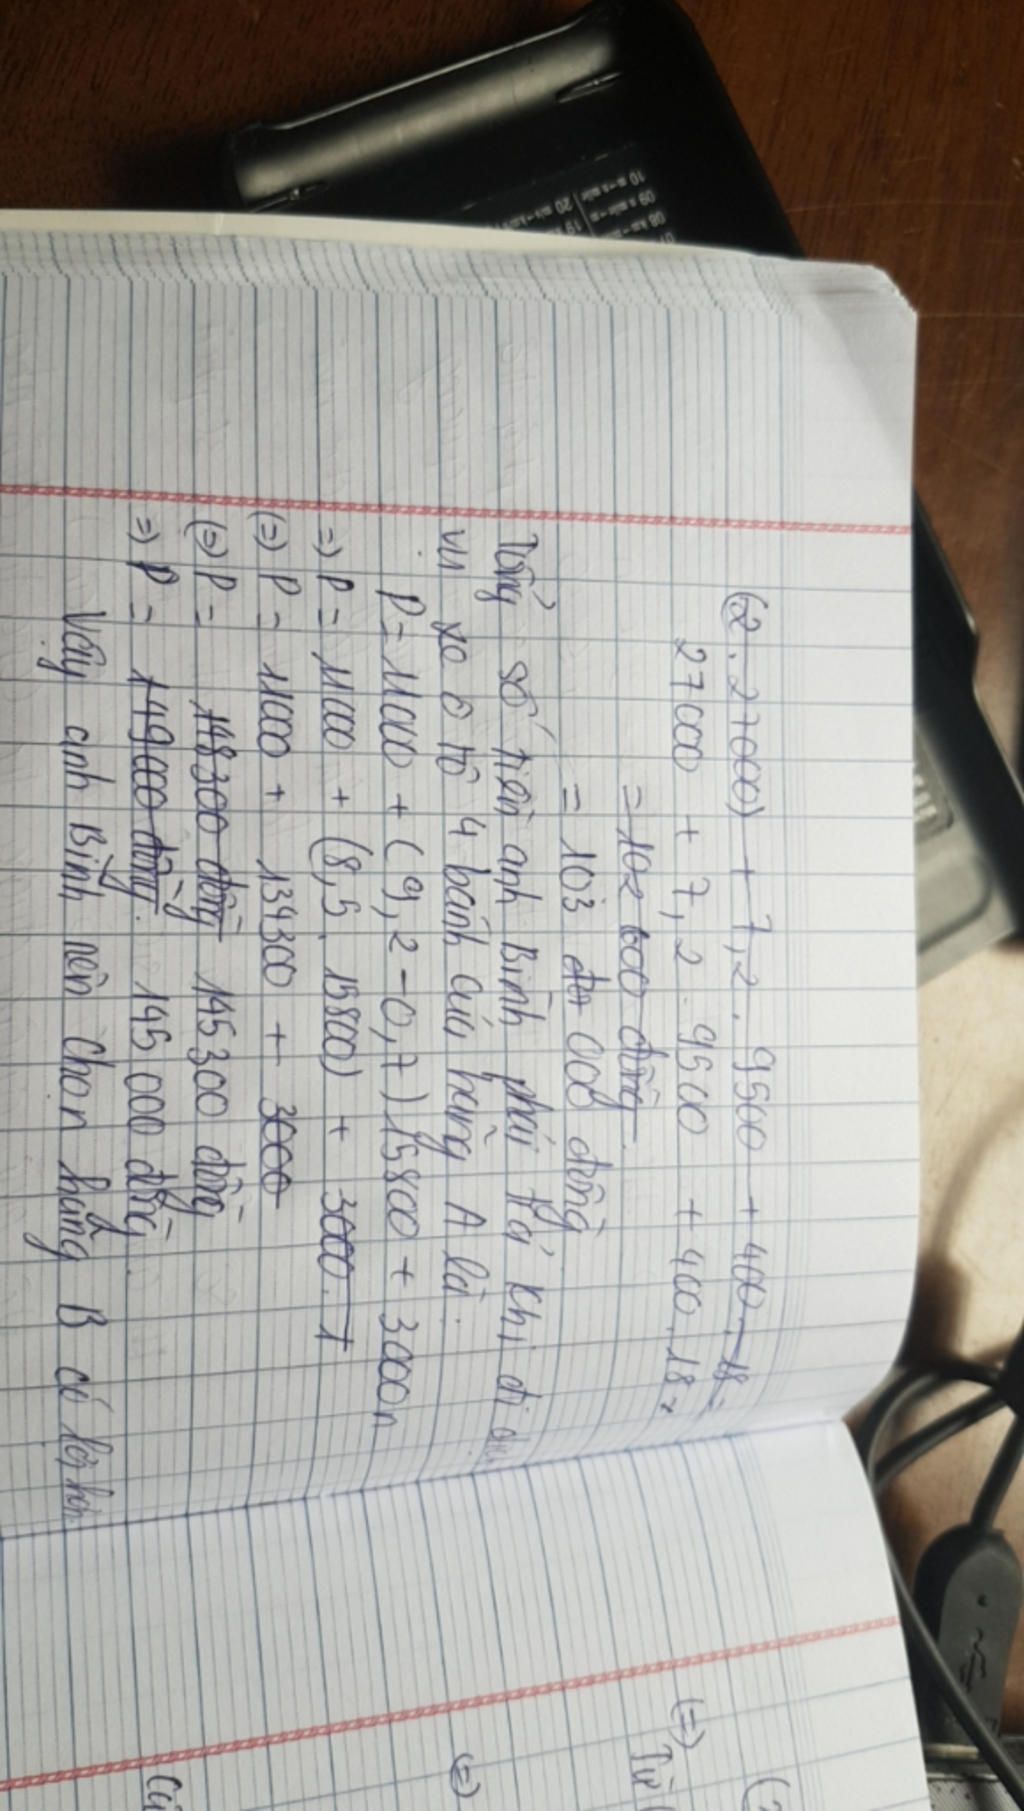 (2.27000) + 7,2.9500 + 400.18 =
27000 + 7,2.9500 + 400.18 =
= 102 600 đồng.
= 103 000 đồng
Tổng số tiền anh Bình phải trả khi đi
vụ xe ô tô 4 bánh của hãng A là:
P = 11000 + (9,2-0,7)15800 + 3000n
=> P = 11000 + (8,5.15800) + 3000.1
(=) P = 11000 + 134300 + 3000
(=) P = 148300 đồng 145300 đồng
=> P = 149000 đồng. 145 000 đồng.
Vậy anh Bình nên chọn hãng B có lợi hơn
(=)
Từ
(=)